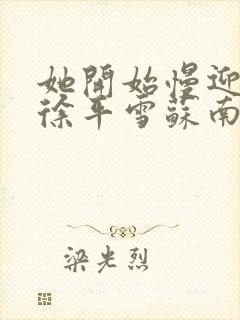 她開始慢迎
徐平雪蘇南
梁光烈